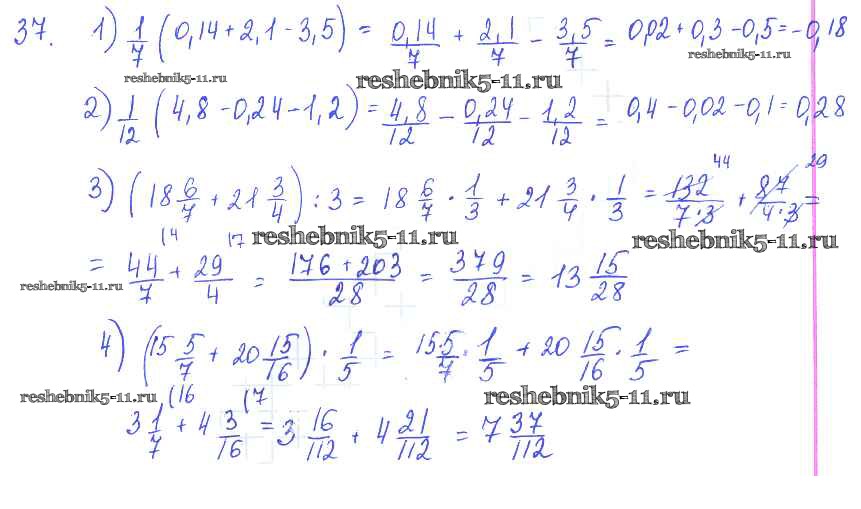 37. 1) 1/7 (0,14 + 2,1 - 3,5) = 0,14/7 + 2,1/7 - 3,5/7 = 0,02 + 0,3 - 0,5 = -0,18
reshebnik5-11.ru reshebnik5-11.ru reshebnik5-11.ru
2) 1/12 (4,8 - 0,24 - 1,2) = 4,8/12 - 0,24/12 - 1,2/12 = 0,4 - 0,02 - 0,1 = 0,28
3) (18 6/7 + 21 3/4) : 3 = 18 6/7 · 1/3 + 21 3/4 · 1/3 = 132/7·3 44 + 87/4·3 29 =
reshebnik5-11.ru reshebnik5-11.ru
= 44/7 (4 + 29/4 (7 = 176 + 203/28 = 379/28 = 13 15/28
reshebnik5-11.ru
4) (15 5/7 + 20 15/16) · 1/5 = 15·5/7 · 1/5 + 20 15/16 · 1/5 =
reshebnik5-11.ru reshebnik5-11.ru
3 1/7 (16 + 4 3/16 (7 = 3 16/112 + 4 21/112 = 7 37/112